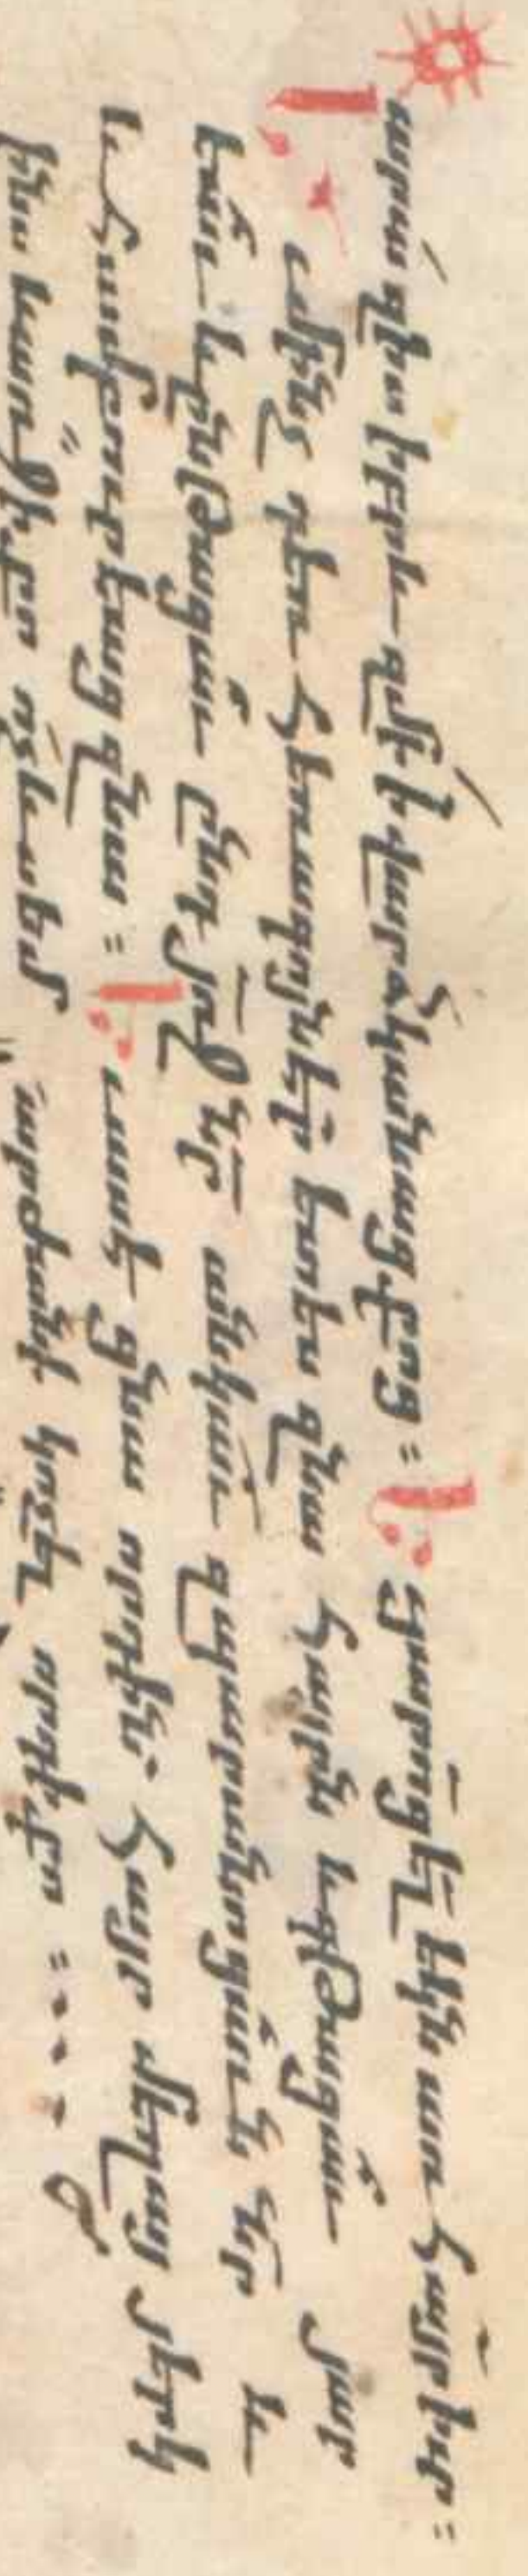 արա զիս իբրև զմի ի վարձկանաց քոց։ Եւ յարուցել եկն առ հայր իւր։
Եւ մինչ դեռ հեռագոյն էր ետես զնա հայրն և գթացաւ յար
եաւ և ընթացաւ ընդ յռջ նր անկաւ զպարանոցաւն նր և
և համբուրեաց զնա։ Եւ ասէ ցնա որդին. հայր մեղայ յերկ
ինս և առաջի քո ոչ ևս եմ արժանի կոչել որդի քո։